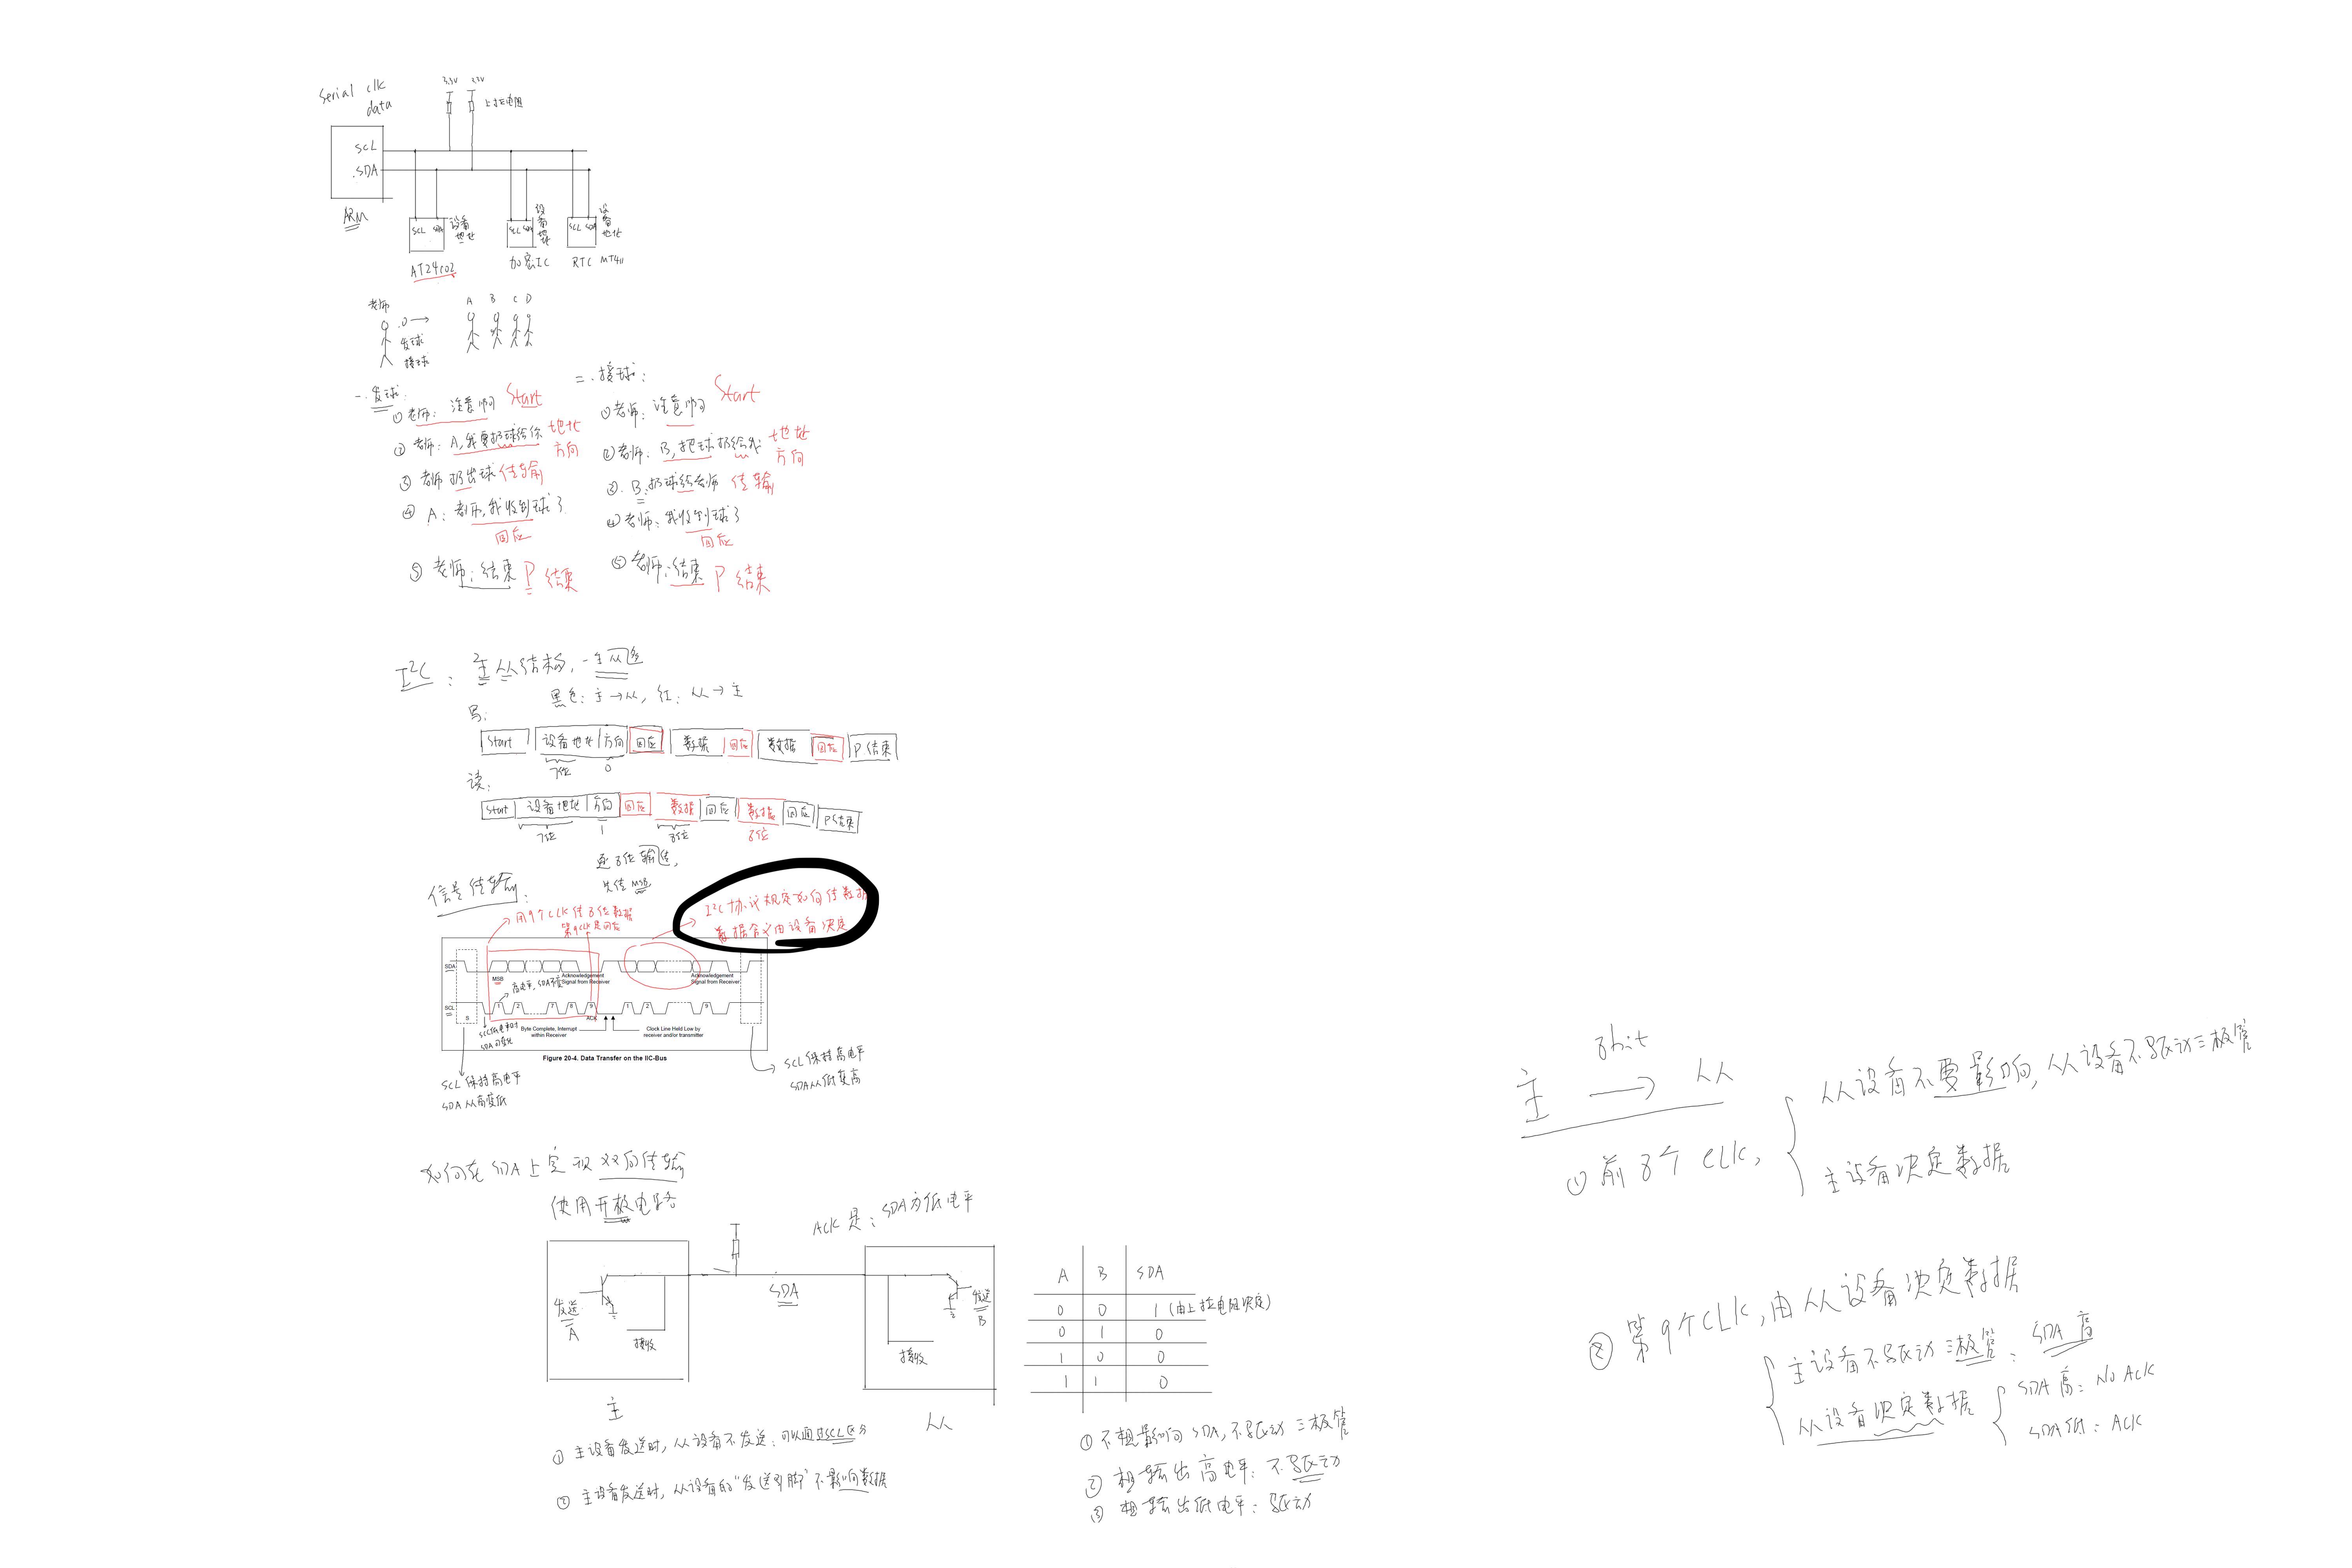 Serial clk
data
3.3V 3.3V
上拉电阻
SCL
SDA
ARM
SCL SDA 设备地址
SCL SDA 设备地址
SCL SDA 设备地址
AT24C02
加密IC
RTC
老师
发球
接球
A B C D
一.发球:
①老师: 注意啊 Start
②老师: A,我要扔球给你 地址
方向
③老师扔出球 传输
④A: 老师,我收到球了
回应
⑤老师:结束 P 结束
二.接球:
①老师: 注意啊 Start
②老师: B,把球扔给我 地址
方向
③.B:扔球给老师 传输
④老师:我收到球了
回应
⑤老师:结束 P 结束
I²C: 主从结构,一主从多
黑色:主→从, 红: 从→主
写:
Start 设备地址 方向 回应 数据 回应 数据 回应 P 结束
7位 0
读:
Start 设备地址 方向 回应 数据 回应 数据 回应 P结束
7位 1 8位 8位
逐8位输传,
先传 MSB
信号传输:
用9个CLK传8位数据
第9CLK是回应
I²C协议规定如何传数据
数据含义由设备决定
SDA
MSB
Acknowledgement
Signal from Receiver
Acknowledgement
Signal from Receiver
高电平,SDA不变
SCL
S
1 2 7 8 9 1 2 9
ACK
SCL低电平时
SDA可变化
Byte Complete, Interrupt
within Receiver
Clock Line Held Low by
receiver and/or transmitter
Figure 20-4. Data Transfer on the IIC-Bus
SCL 保持高电平
SDA 从高变低
SCL 保持高电平
SDA从低变高
如何在 SDA 上实现双向传输
使用开极电路
ACK 是: SDA为低电平
发送
A
接收
SDA
接收
发送
B
主
从
A B SDA
0 0 1 (由上拉电阻决定)
0 1 0
1 0 0
1 1 0
① 主设备发送时, 从设备不发送: 可以通过SCL区分
② 主设备发送时, 从设备的“发送引脚”不影响数据
① 不想影响SDA,不驱动三极管
② 想输出高电平: 不驱动
③ 想输出低电平: 驱动
8bit
主 → 从
① 前8个CLK,
从设备不要影响,从设备不驱动三极管
主设备决定数据
② 第9个CLK,由从设备决定数据
主设备不驱动三极管: SDA 高
从设备决定数据
SDA 高: No ACK
SDA低: ACK